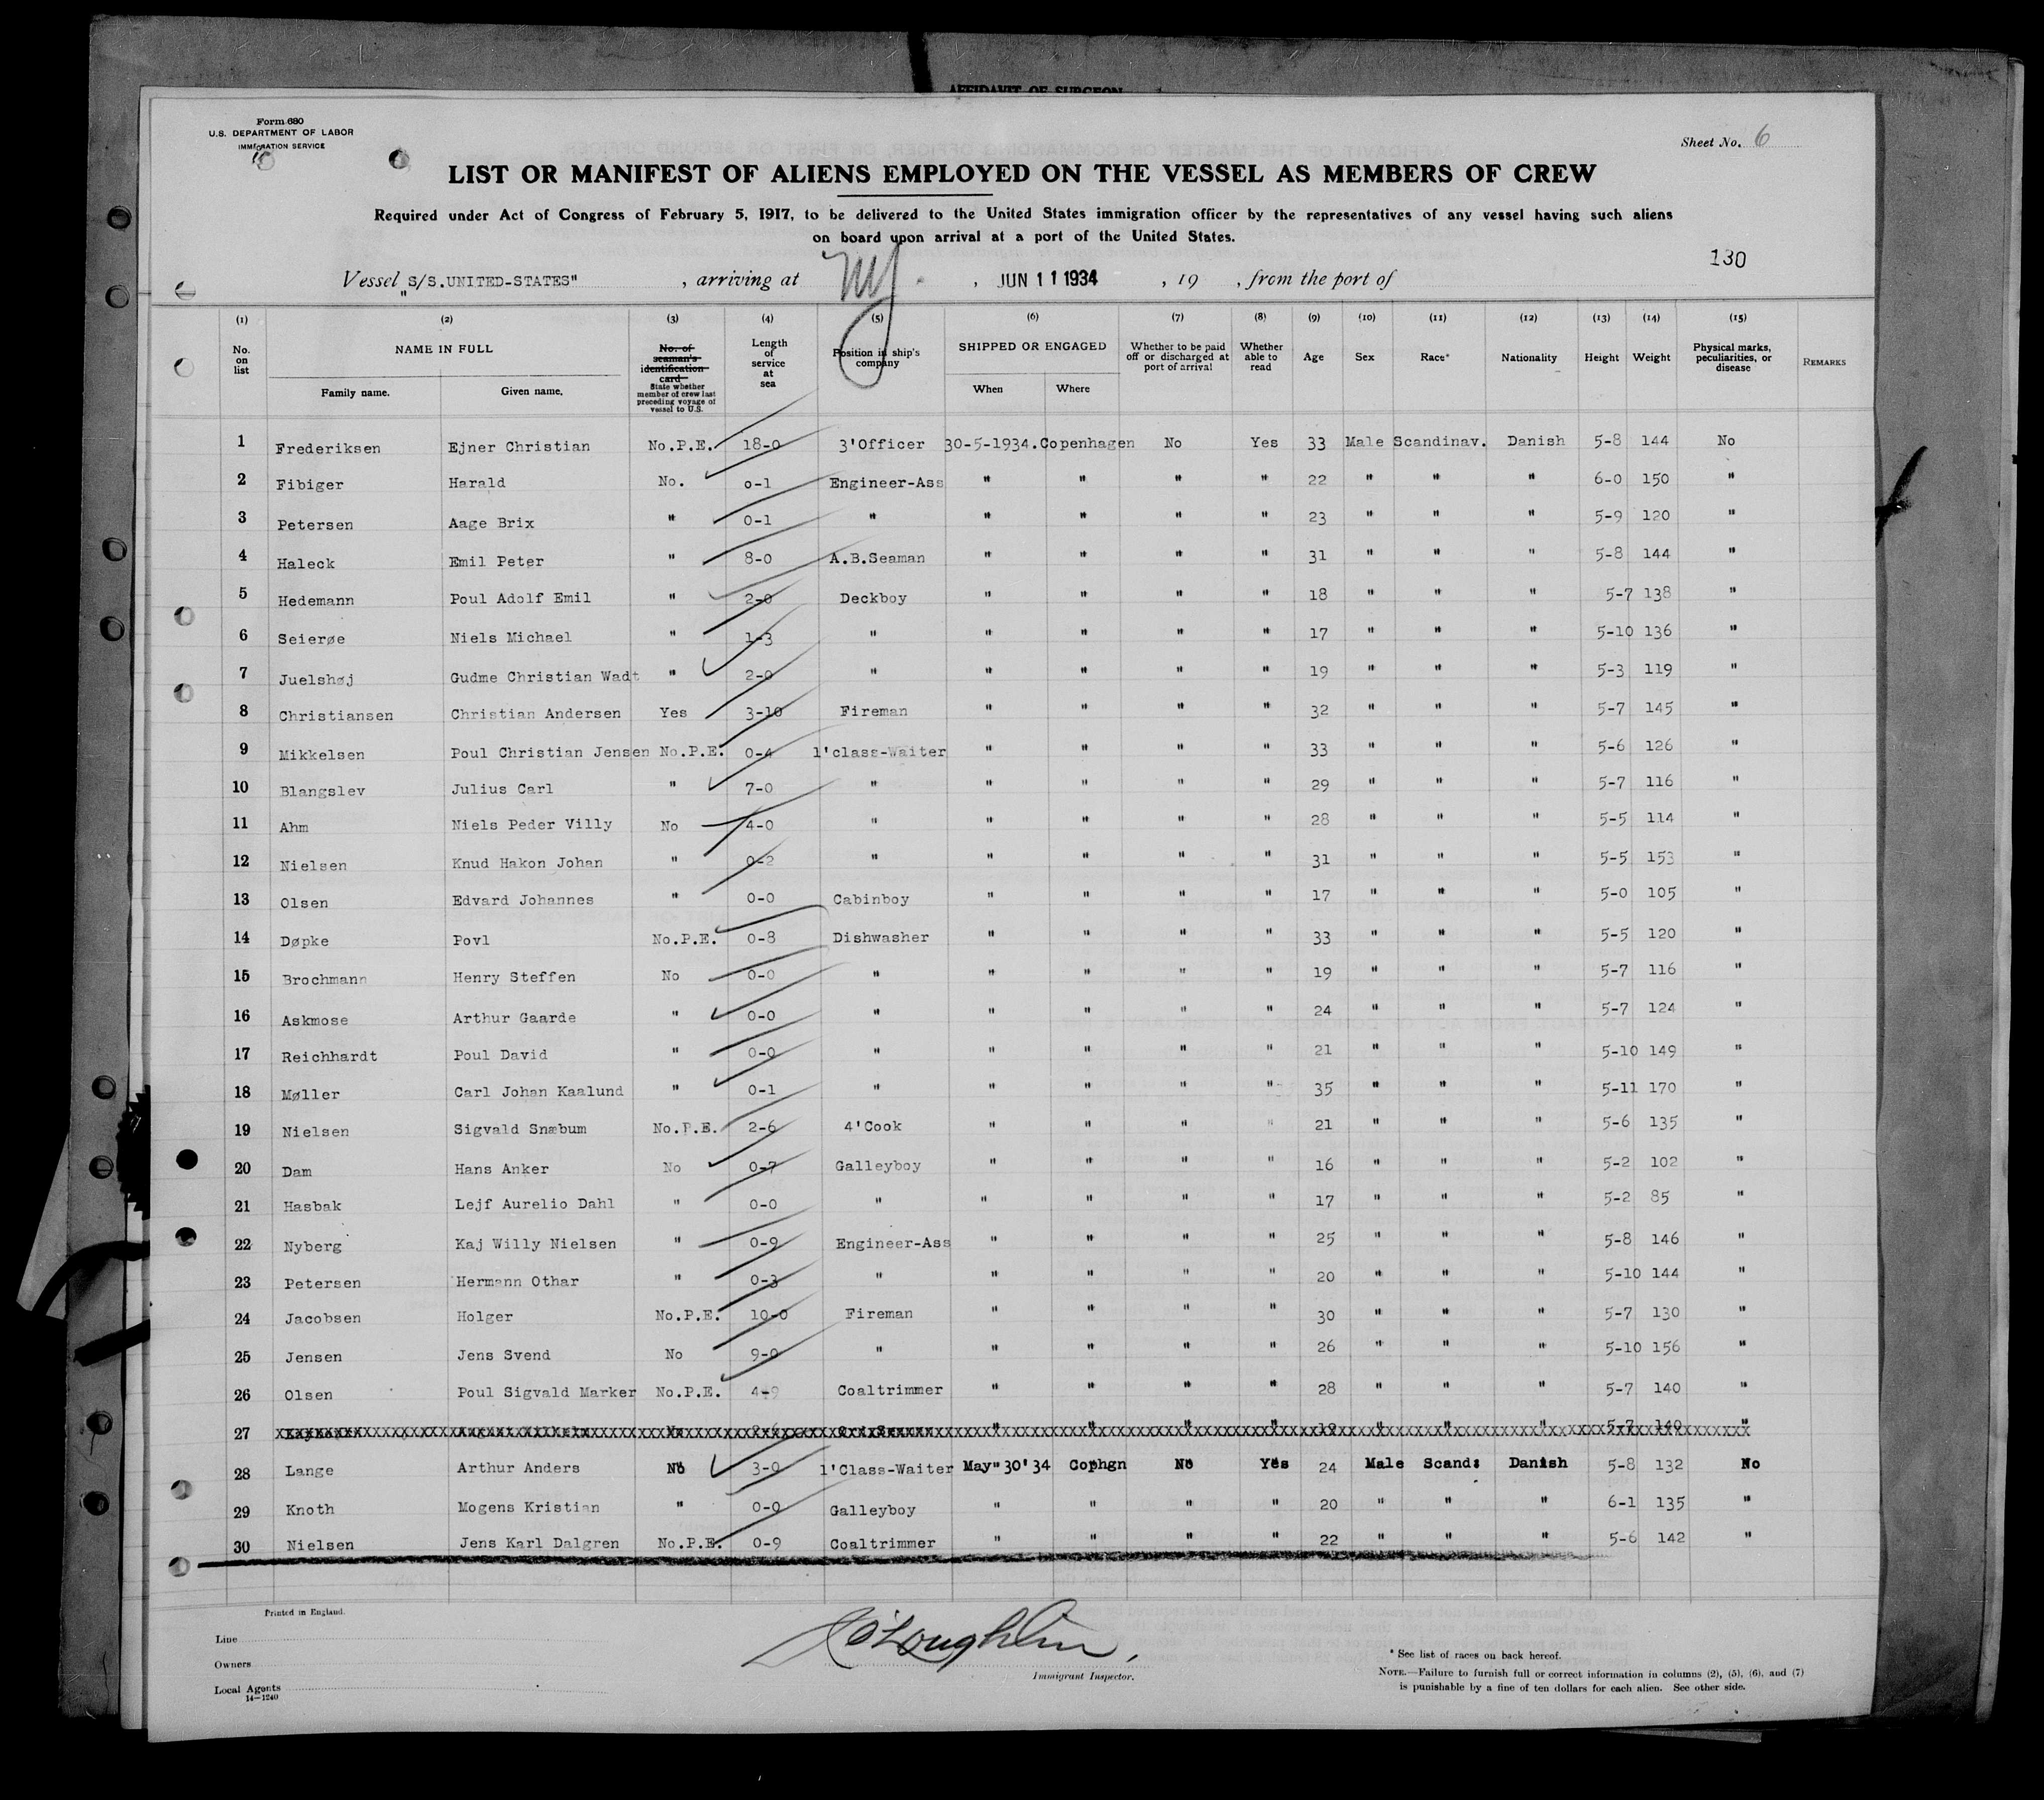 AFFIDAVIT OF SURGEON
Form 680
U.S. DEPARTMENT OF LABOR
IMMIGRATION SERVICE
Sheet No. 6
LIST OR MANIFEST OF ALIENS EMPLOYED ON THE VESSEL AS MEMBERS OF CREW
Required under Act of Congress of February 5, 1917, to be delivered to the United States immigration officer by the representatives of any vessel having such aliens
on board upon arrival at a port of the United States.
130
Vessel "S/S.UNITED-STATES" , arriving at NY. , JUN 11 1934 , 19 , from the port of
(1) (2) (3) (4) (5) (6) (7) (8) (9) (10) (11) (12) (13) (14) (15)
No. on list NAME IN FULL Family name. Given name. No. of seaman's identification card State whether member of crew last preceding voyage of vessel to U.S. Length of service at sea Position in ship's company SHIPPED OR ENGAGED When Where Whether to be paid off or discharged at port of arrival Whether able to read Age Sex Race* Nationality Height Weight Physical marks, peculiarities, or disease REMARKS
1 Frederiksen Ejner Christian No.P.E. 18-0 3'Officer 30-5-1934. Copenhagen No Yes 33 Male Scandinav. Danish 5-8 144 No
2 Fibiger Harald No. 0-1 Engineer-Ass " " " " 22 " " " 6-0 150 "
3 Petersen Aage Brix " 0-1 " " " " " 23 " " " 5-9 120 "
4 Haleck Emil Peter " 8-0 A.B.Seaman " " " " 31 " " " 5-8 144 "
5 Hedemann Poul Adolf Emil " 2-0 Deckboy " " " " 18 " " " 5-7 138 "
6 Seierøe Niels Michael " 1-3 " " " " " 17 " " " 5-10 136 "
7 Juelshøj Gudme Christian Wadt " 2-0 " " " " " 19 " " " 5-3 119 "
8 Christiansen Christian Andersen Yes 3-10 Fireman " " " " 32 " " " 5-7 145 "
9 Mikkelsen Poul Christian Jensen No.P.E. 0-4 1'class-Waiter " " " " 33 " " " 5-6 126 "
10 Blangslev Julius Carl " 7-0 " " " " " 29 " " " 5-7 116 "
11 Ahm Niels Peder Villy No 4-0 " " " " " 28 " " " 5-5 114 "
12 Nielsen Knud Hakon Johan " 0-2 " " " " " 31 " " " 5-5 153 "
13 Olsen Edvard Johannes " 0-0 Cabinboy " " " " 17 " " " 5-0 105 "
14 Døpke Povl No.P.E. 0-8 Dishwasher " " " " 33 " " " 5-5 120 "
15 Brochmann Henry Steffen No 0-0 " " " " " 19 " " " 5-7 116 "
16 Askmose Arthur Gaarde " 0-0 " " " " " 24 " " " 5-7 124 "
17 Reichhardt Poul David " 0-0 " " " " " 21 " " " 5-10 149 "
18 Møller Carl Johan Kaalund " 0-1 " " " " " 35 " " " 5-11 170 "
19 Nielsen Sigvald Snæbum No.P.E. 2-6 4'Cook " " " " 21 " " " 5-6 135 "
20 Dam Hans Anker No 0-7 Galleyboy " " " " 16 " " " 5-2 102 "
21 Hasbak Lejf Aurelio Dahl " 0-0 " " " " " 17 " " " 5-2 85 "
22 Nyberg Kaj Willy Nielsen " 0-9 Engineer-Ass " " " " 25 " " " 5-8 146 "
23 Petersen Hermann Othar " 0-3 " " " " " 20 " " " 5-10 144 "
24 Jacobsen Holger No.P.E. 10-0 Fireman " " " " 30 " " " 5-7 130 "
25 Jensen Jens Svend No 9-0 " " " " " 26 " " " 5-10 156 "
26 Olsen Poul Sigvald Marker No.P.E. 4-9 Coaltrimmer " " " " 28 " " " 5-7 140 "
27 No " " " " 19 " " " 5-7 140 "
28 Lange Arthur Anders No 3-0 1'Class-Waiter May 30'34 Cophgn No Yes 24 Male Scand: Danish 5-8 132 No
29 Knoth Mogens Kristian " 0-0 Galleyboy " " " " 20 " " " 6-1 135 "
30 Nielsen Jens Karl Dalgren No.P.E. 0-9 Coaltrimmer " " " " 22 " " " 5-6 142 "
Printed in England.
Line
Owners
Local Agents
14—1240
O'Loughlin,
Immigrant Inspector.
* See list of races on back hereof.
NOTE.—Failure to furnish full or correct information in columns (2), (5), (6), and (7)
is punishable by a fine of ten dollars for each alien. See other side.